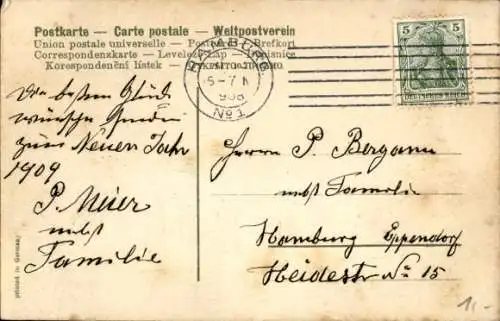 Postkarte – Carte postale – Weltpostverein
Union postale universelle – Brefkort
Correspondenzkarte – Levelező-Lap
Korespondenční lístek –
HAMBURG
5-7 N
No 1.
5
DEUTSCHES REICH
Die besten Glück
wünsche senden
zum Neuen Jahr
1909
P. Meier
nebst
Familie
Herrn P. Bergann
nebst Familie
Hamburg Eppendorf
Heidestr No 15
printed in Germany
1.-